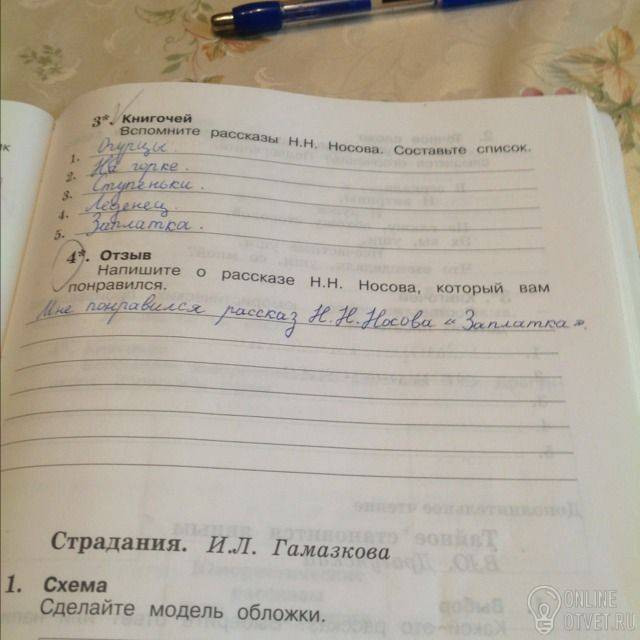 3*. Книгочей
Вспомните рассказы Н.Н. Носова. Составьте список.
1. Огурцы.
2. На горке.
3. Ступеньки.
4. Леденец.
5. Заплатка.
4*. Отзыв
Напишите о рассказе Н.Н. Носова, который вам
понравился.
Мне понравился рассказ Н.Н.Носова «Заплатка».
Страдания. И.Л. Гамазкова
1. Схема
Сделайте модель обложки.
ONLINE
OTVET.RU